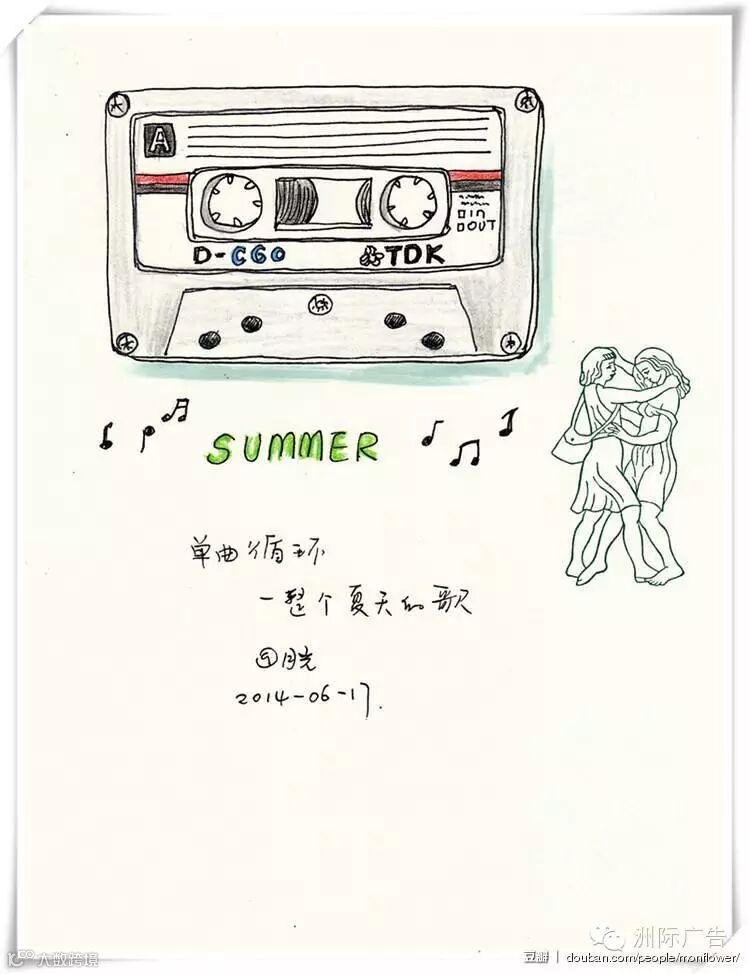 A
in
OUT
D-C60
TDK
SUMMER
单曲循环
一整个夏天的歌
月光
2014-06-17.
洲际广告
大数跨境
豆瓣 | douban.com/people/monflower/